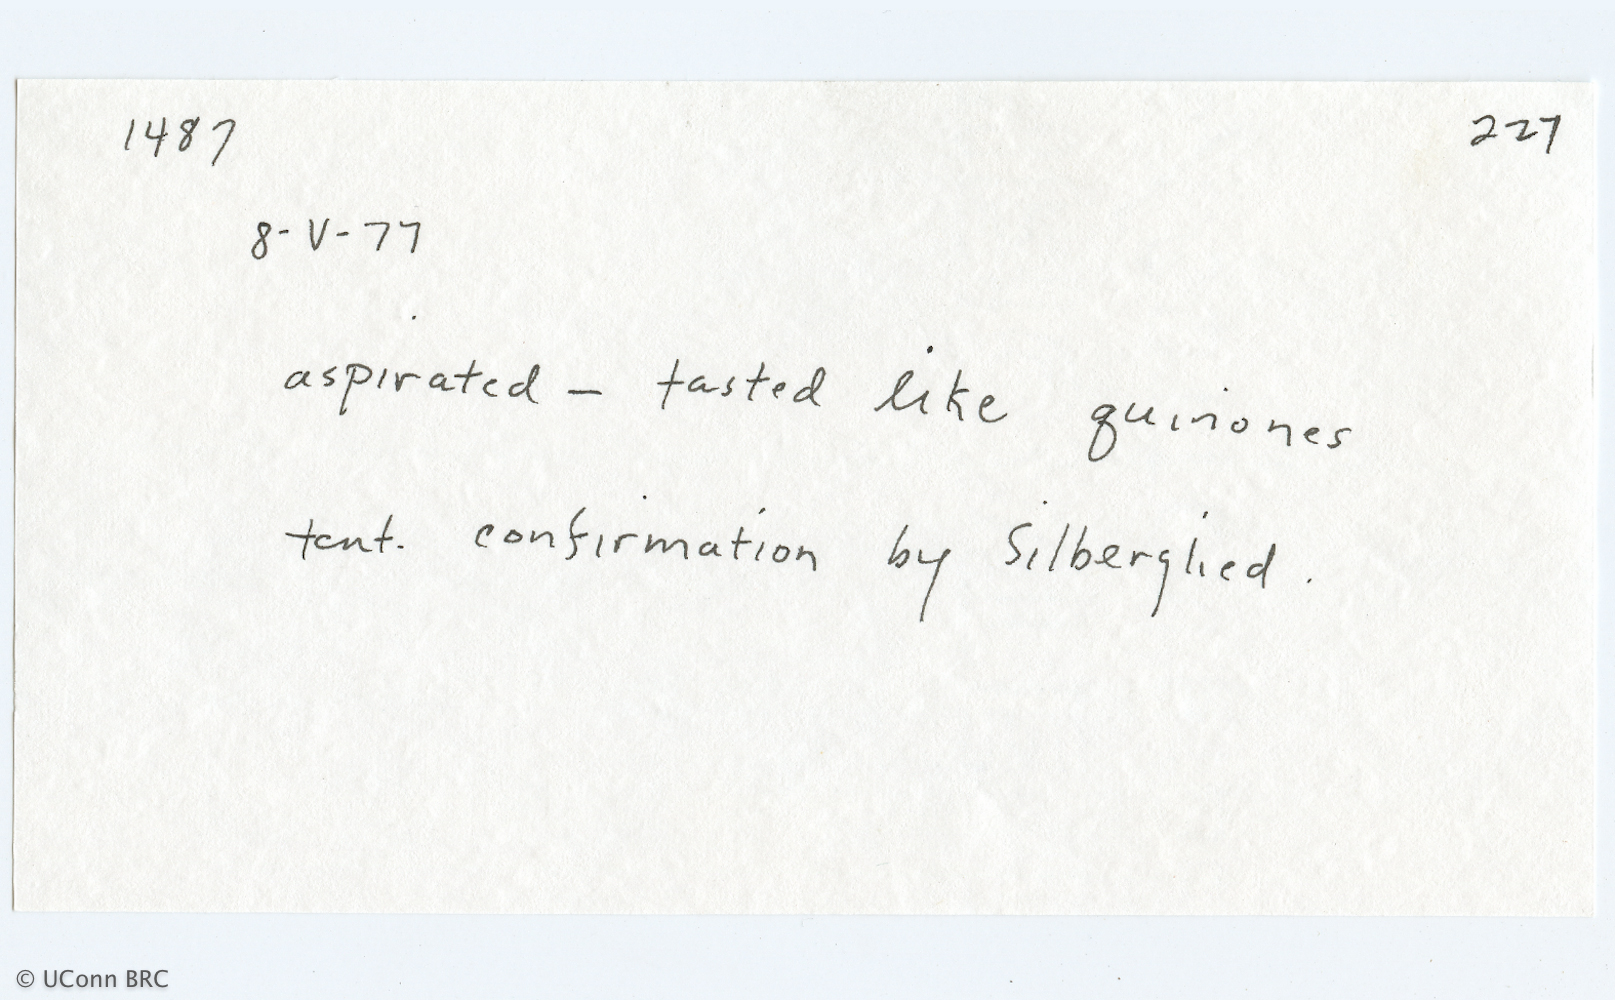 1487 227
8-V-77
aspirated - tasted like quinones
tent. confirmation by Silberglied.
© UConn BRC